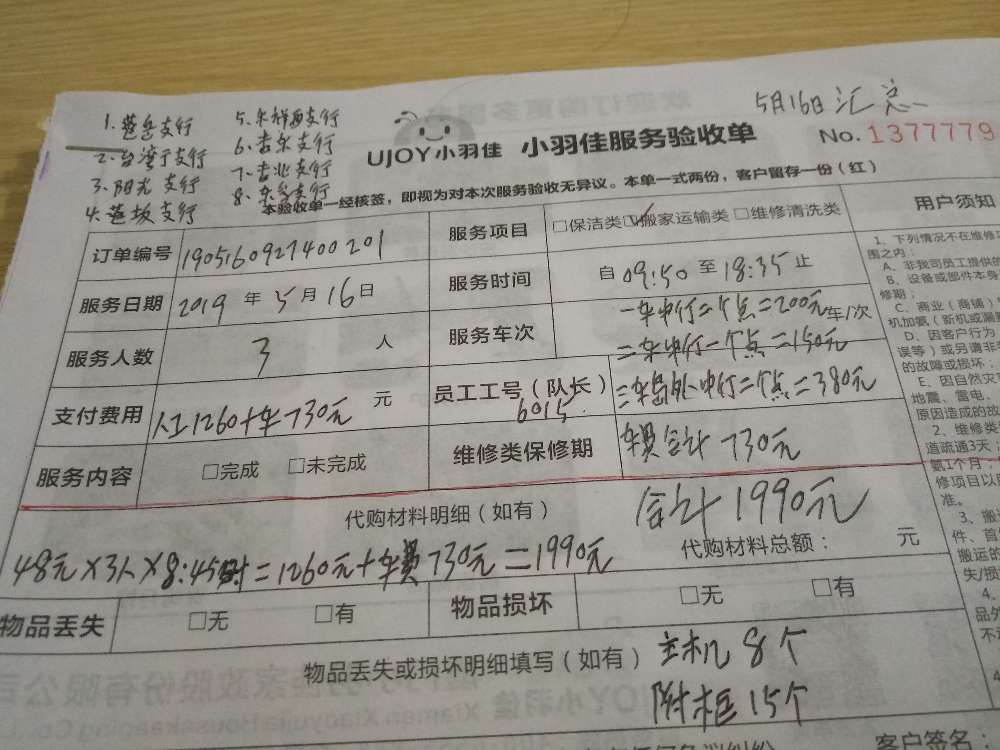 5月16日汇总
1. 莲岳支行
2. 台湾子支行
3. 阳光支行
4. 莲坂支行
5. 支行
6. 支行
7. 支行
8. 支行
UJOY小羽佳 小羽佳服务验收单
No. 1377779
本验收单一经核签，即视为对本次服务验收无异议。本单一式两份，客户留存一份（红）
订单编号 1905160927400201
服务项目 □保洁类☑搬家运输类□维修清洗类
服务日期 2019 年 5 月 16 日
服务时间 自 09:50 至 18:35 止
服务人数 3 人
服务车次 一车中行二个点=200元 车/次
二车中行一个点=150元
支付费用 人工1260+车730元 元
员工工号（队长） 6015
三车岛外中行二个点=380元
服务内容 □完成 □未完成
维修类保修期 车费合计 730元
代购材料明细（如有） 合计1990元
48元×3人×8:45时=1260元+车费730元=1990元
代购材料总额： 元
物品丢失 □无 □有
物品损坏 □无 □有
物品丢失或损坏明细填写（如有） 主机8个
附柜15个
客户签名：
用户须知
1、下列情况不在维修
围之内：
A、非我司员工提供的
B、设备或部件本身
修期；
C、商业（商铺）
机加氨（新机或漏
D、因客户行为
误等）或另请非
的故障或损坏；
E、因自然灾
地震、雷电、
原因造成的故
2、维修类
道疏通3天；
氨1个月；
修项目以
准。
3、搬
件、首
搬运的
失/损
4、
品外
不